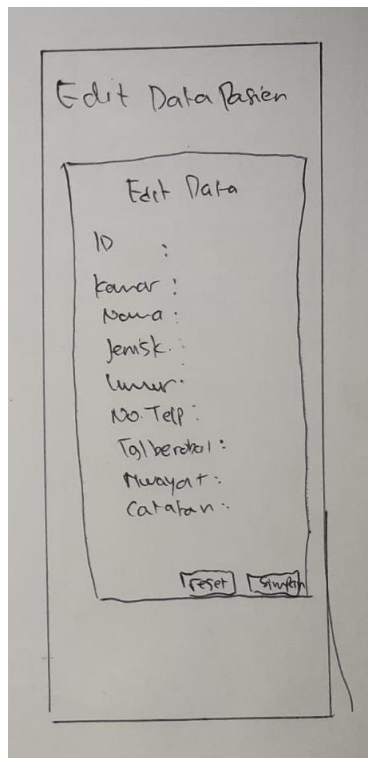 Edit Data Pasien
Edit Data
ID :
Kamar :
Nama :
Jenisk. :
Umur :
No. Telp :
Tgl berobat :
Riwayat :
Catatan :
reset simpan